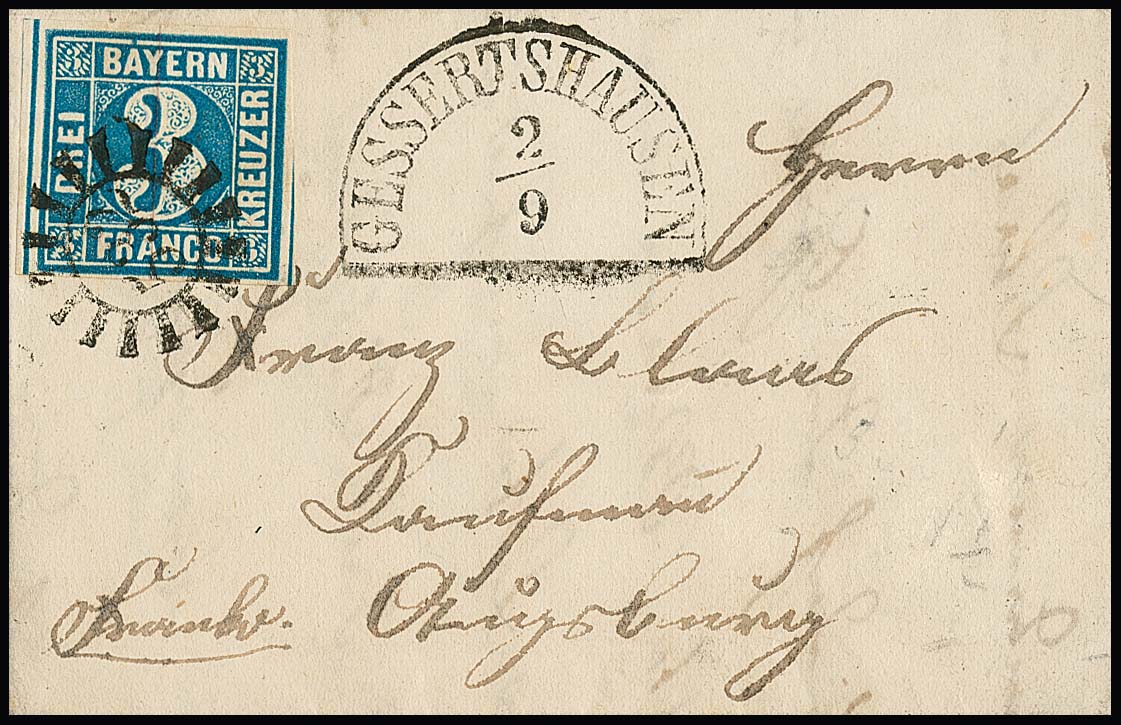 BAYERN
3 3
DREI
3
KREUZER
3 FRANCO 3
GESSERTSHAUSEN
2
9
Herrn
Franz Claus
Kaufman̄
Augsburg
Franko.